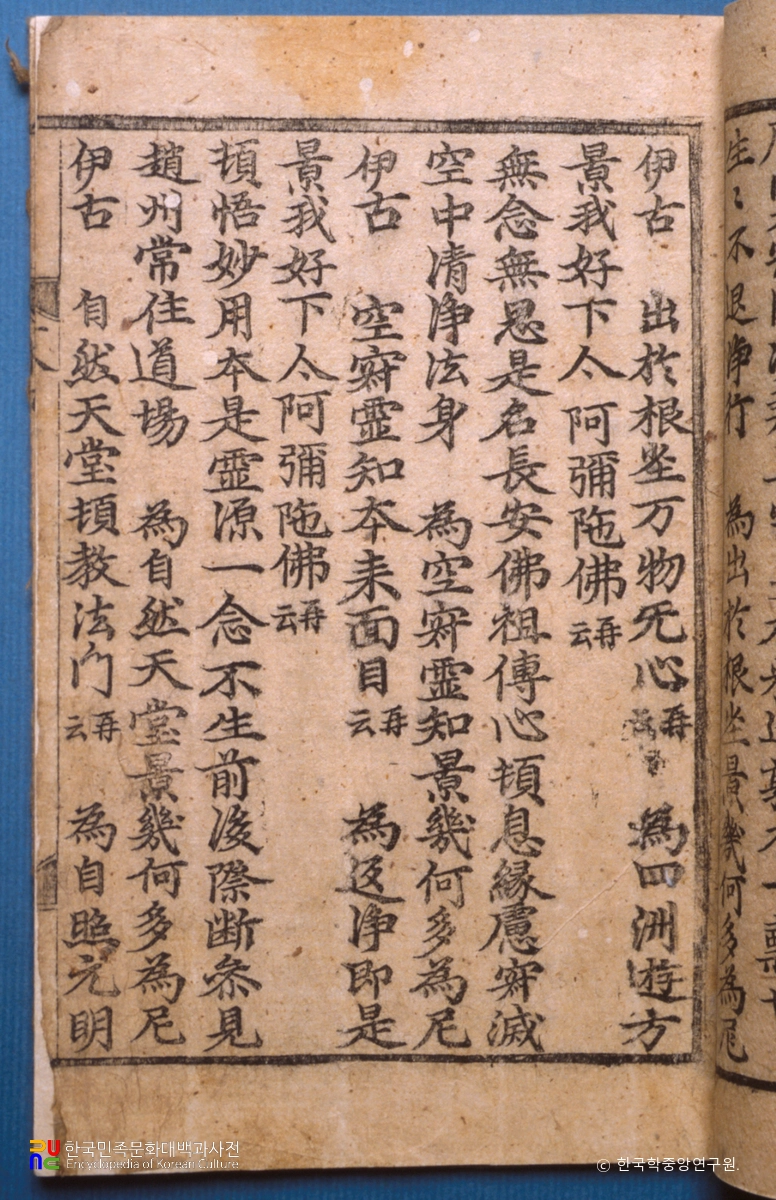 生〻不退淨行 為出於根坐景幾何多為尼
伊古 出於根坐万物无心再云 為四洲遊方
景我好下亽阿彌陁佛再云
無念無思是名長安佛祖傳心頓息緣慮寂滅
空中清淨法身 為空寂靈知景幾何多為尼
伊古 空寂靈知本来面目再云 為返淨即是
景我好下亽阿彌陁佛再云
頓悟妙用本是靈源一念不生前後際断叅見
趙州常住道場 為自然天堂景幾何多為尼
伊古 自然天堂頓教法门再云 為自照元明
한국민족문화대백과사전
Encyclopedia of Korean Culture
© 한국학중앙연구원.